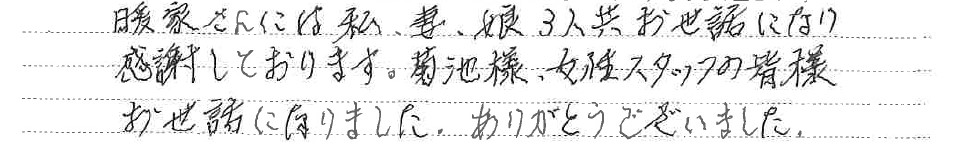 暖家さんには私、妻、娘3人共お世話になり
感謝しております。菊池様、女性スタッフの皆様
お世話になりました。ありがとうございました。